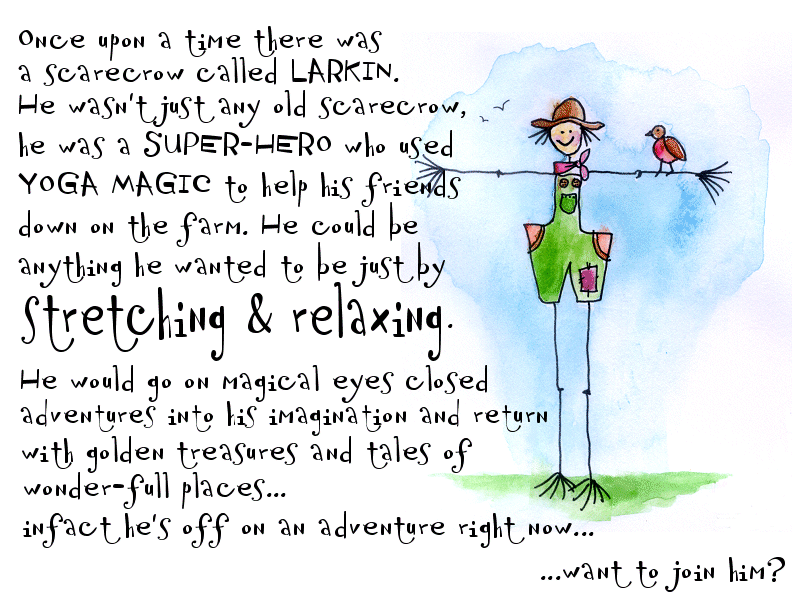 Once upon a time there was
a scarecrow called LARKIN.
He wasn't just any old scarecrow,
he was a SUPER-HERO who used
YOGA MAGIC to help his friends
down on the farm. He could be
anything he wanted to be just by
stretching & relaxing.
He would go on magical eyes closed
adventures into his imagination and return
with golden treasures and tales of
wonder-full places...
infact he's off on an adventure right now...
...want to join him?